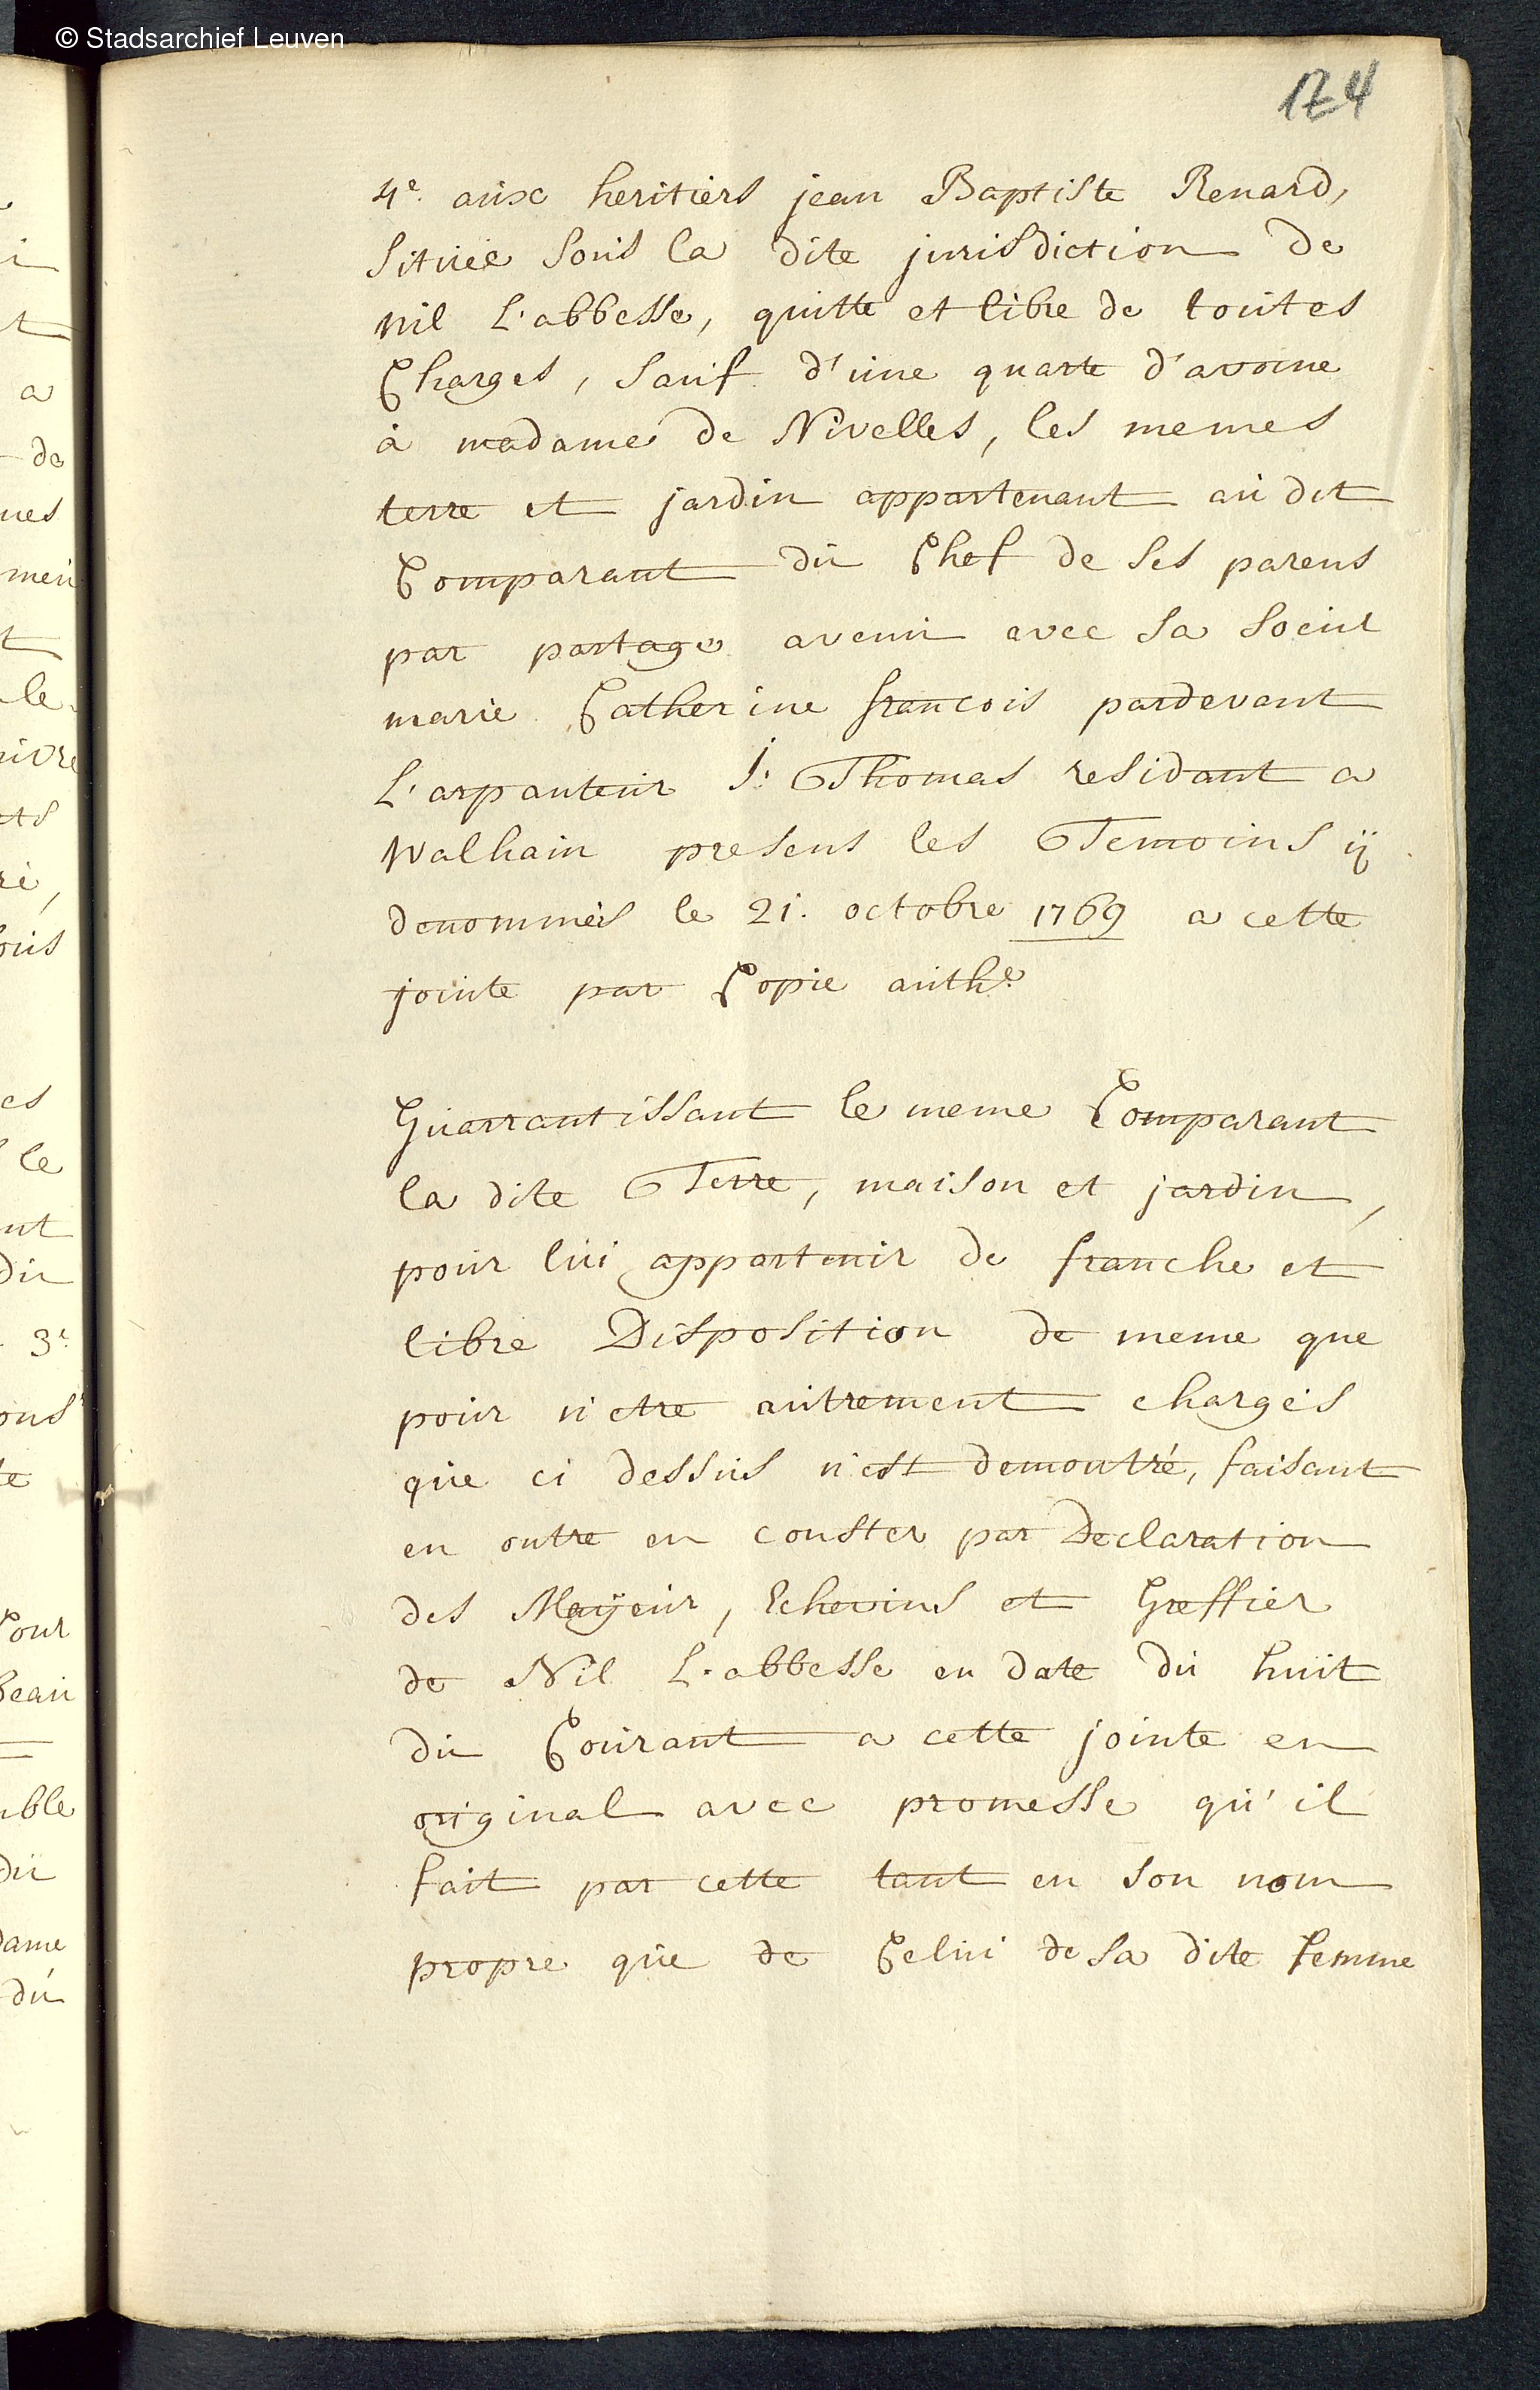 © Stadsarchief Leuven
174
4e. aux heritiers jean Baptiste Renard,
Située sous la dite jurisdiction de
nil L'abbesse, quitte et libre de toutes
Charges, Sauf d'une quarte d'avoine
à madame de Nivelles, les memes
terre et jardin appartenant au dit
Comparant du Chef de ses parens
par partage avenu avec sa soeur
marie Catherine francois pardevant
L'arpanteur J: Thomas residant a
Walhain presens les Temoins ÿ
denommés le 21. octobre 1769 a cette
jointe par Copie authe.
Guarrantissant le meme Comparant
la dite Terre, maison et jardin,
pour lui appartenir de franche et
libre Disposition de meme que
pour n'etre autrement chargés
que ci dessus n'est demontré, faisant
en outre en conster par Declaration
des Maÿeur, Echevins et Greffier
de Nil L'abbesse en date du huit
du Courant a cette jointe en
original avec promesse qu'il
fait par cette tant en son nom
propre que de Celui de sa dite femme